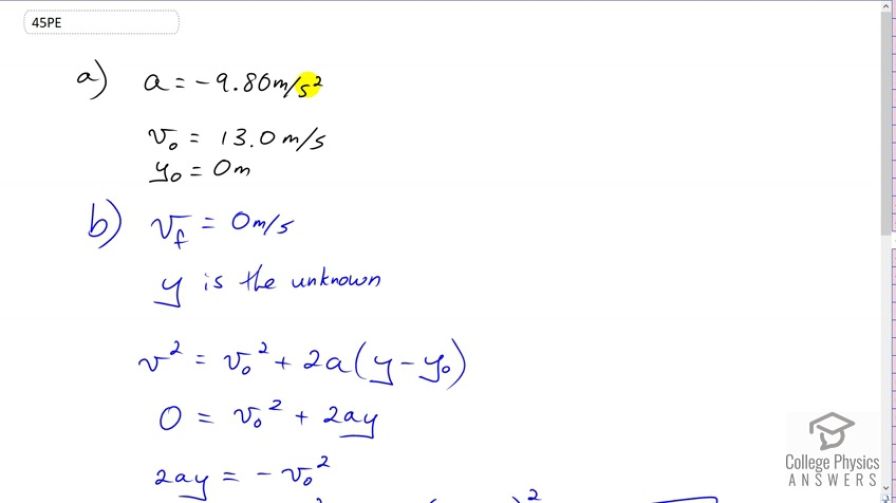 45PE
a) a = -9.80 m/s²
v₀ = 13.0 m/s
y₀ = 0 m
b) v_f = 0 m/s
y is the unknown
v² = v₀² + 2a(y - y₀)
0 = v₀² + 2ay
2ay = -v₀²
College Physics
ANSWERS